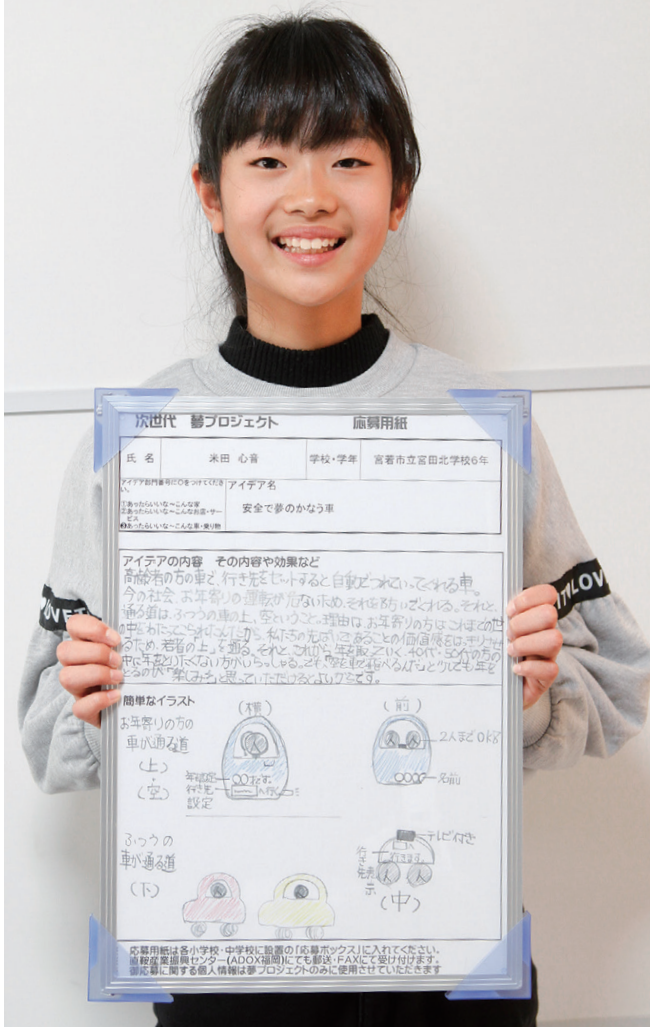 次世代 夢プロジェクト 応募用紙
氏 名 米田 心音 学校・学年 宮若市立宮田北学校6年
アイデア部門番号に○をつけてください。
①あったらいいな〜こんな家
②あったらいいな〜こんなお店・サービス
③あったらいいな〜こんな車・乗り物
アイデア名
安全で夢のかなう車
アイデアの内容 その内容や効果など
高齢者の方の車で、行き先をセットすると自動でつれていってくれる車。
今の社会、お年寄りの運転が危ないため、それを防いでくれる。それと、
通る道は、ふつうの車の上、空ということ。理由は、お年寄りの方はこれまでの世
の中をわたってこられた人だから、私たちの先ぱいであることの価値感を
るため、若者の上を通る。それと、これから年を取っていく、40代・50代の方の
中に年をとりたくない方がいらっしゃる。でも、"空を飛べるんだ"と少しでも年を
とるのが"楽しみだ"と思っていただけるとよいからです。
簡単なイラスト
お年寄りの方の
車が通る道
(上)
・
(空)
(横)
行き先
設定
(前)
2人までOK!!
名前
ふつうの
車が通る道
(下)
テレビ付き
行き先表示
(中)
応募用紙は各小学校・中学校に設置の「応募ボックス」に入れてください。
直鞍産業振興センター(ADOX福岡)にても郵送・FAXにて受け付けます。
御応募に関する個人情報は夢プロジェクトのみに使用させていただきます